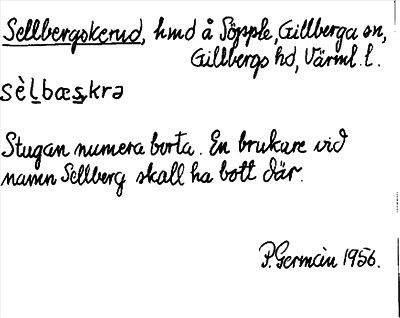 Sellbergskerud, hmd å Söpple, Gillberga sn,
Gillbergs hd, Värml. l.
sèl̠bæs̠kra
Stugan numera borta. En brukare vid
namn Sellberg skall ha bott där.
P. Germain 1956.